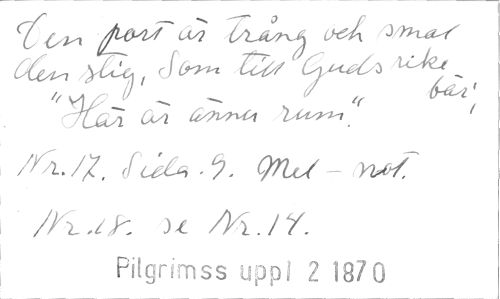 Den port är trång och smal
den stig, Som till Guds rike
bär;
"Här är ännu rum".
Nr.17. Sida.9. Mel - not.
Nr.18. se Nr.14.
Pilgrimss uppl 2 1870